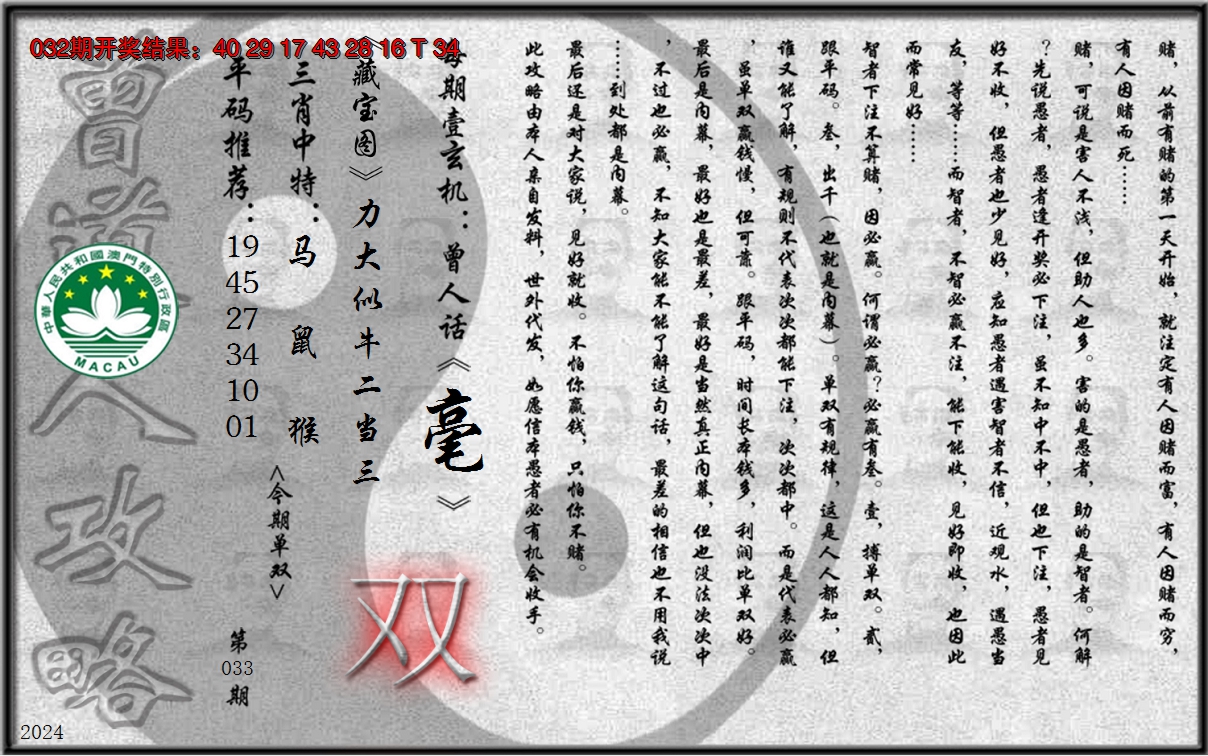 032期开奖结果：40 29 17 43 28 16 T 34
赌，从前有赌的第一天开始，就注定有人因赌而富，有人因赌而穷，
有人因赌而死……
赌，可说是害人不浅，但助人也多。害的是愚者，助的是智者。何解
？先说愚者，愚者逢开奖必下注，虽不知中不中，但也下注，愚者见
好不收，但愚者也少见好，应知愚者遇害智者不信，近观水，遇愚当
友，等等……而智者，不智必赢不注，能下能收，见好即收，也因此
而常见好……
智者下注不算赌，因必赢。何谓必赢？必赢有叁。壹，搏单双。贰，
跟平码。叁，出千（也就是内幕）。单双有规律，这是人人都知，但
谁又能了解，有规则不代表次次都能下注，次次都中。而是代表必赢
，虽单双赢钱慢，但可靠。跟平码，时间长本钱多，利润比单双好。
最后是内幕，最好也是最差，最好是当然真正内幕，但也没法次次中
，不过也必赢，不知大家能不能了解这句话，最差的相信也不用我说
……到处都是内幕。
最后还是对大家说，见好就收。不怕你赢钱，只怕你不赌。
此攻略由本人亲自发料，世外代发，如愿信本愚者必有机会收手。
每期壹玄机：曾人话《毫》
《藏宝图》力大似牛二当三
双
三肖中特：马 鼠 猴
<今期单双>
平码推荐：
19
45
27
34
10
01
第
033
期
曾道人攻略
中華人民共和國澳門特別行政區
MACAU
2024